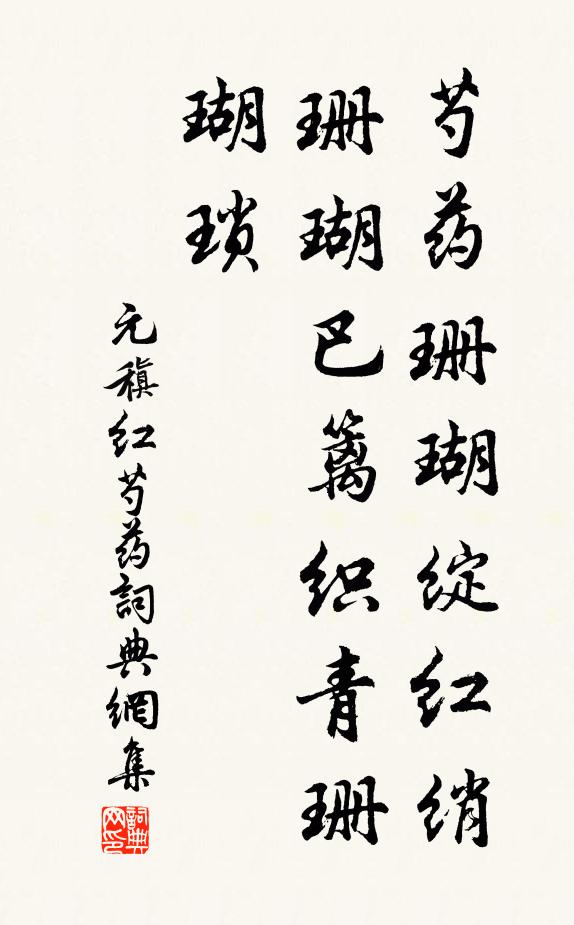 芍药珊瑚绽红绡
珊瑚巴篱织青珊
瑚琐
元稹红芍药詞典網集
詞典网印